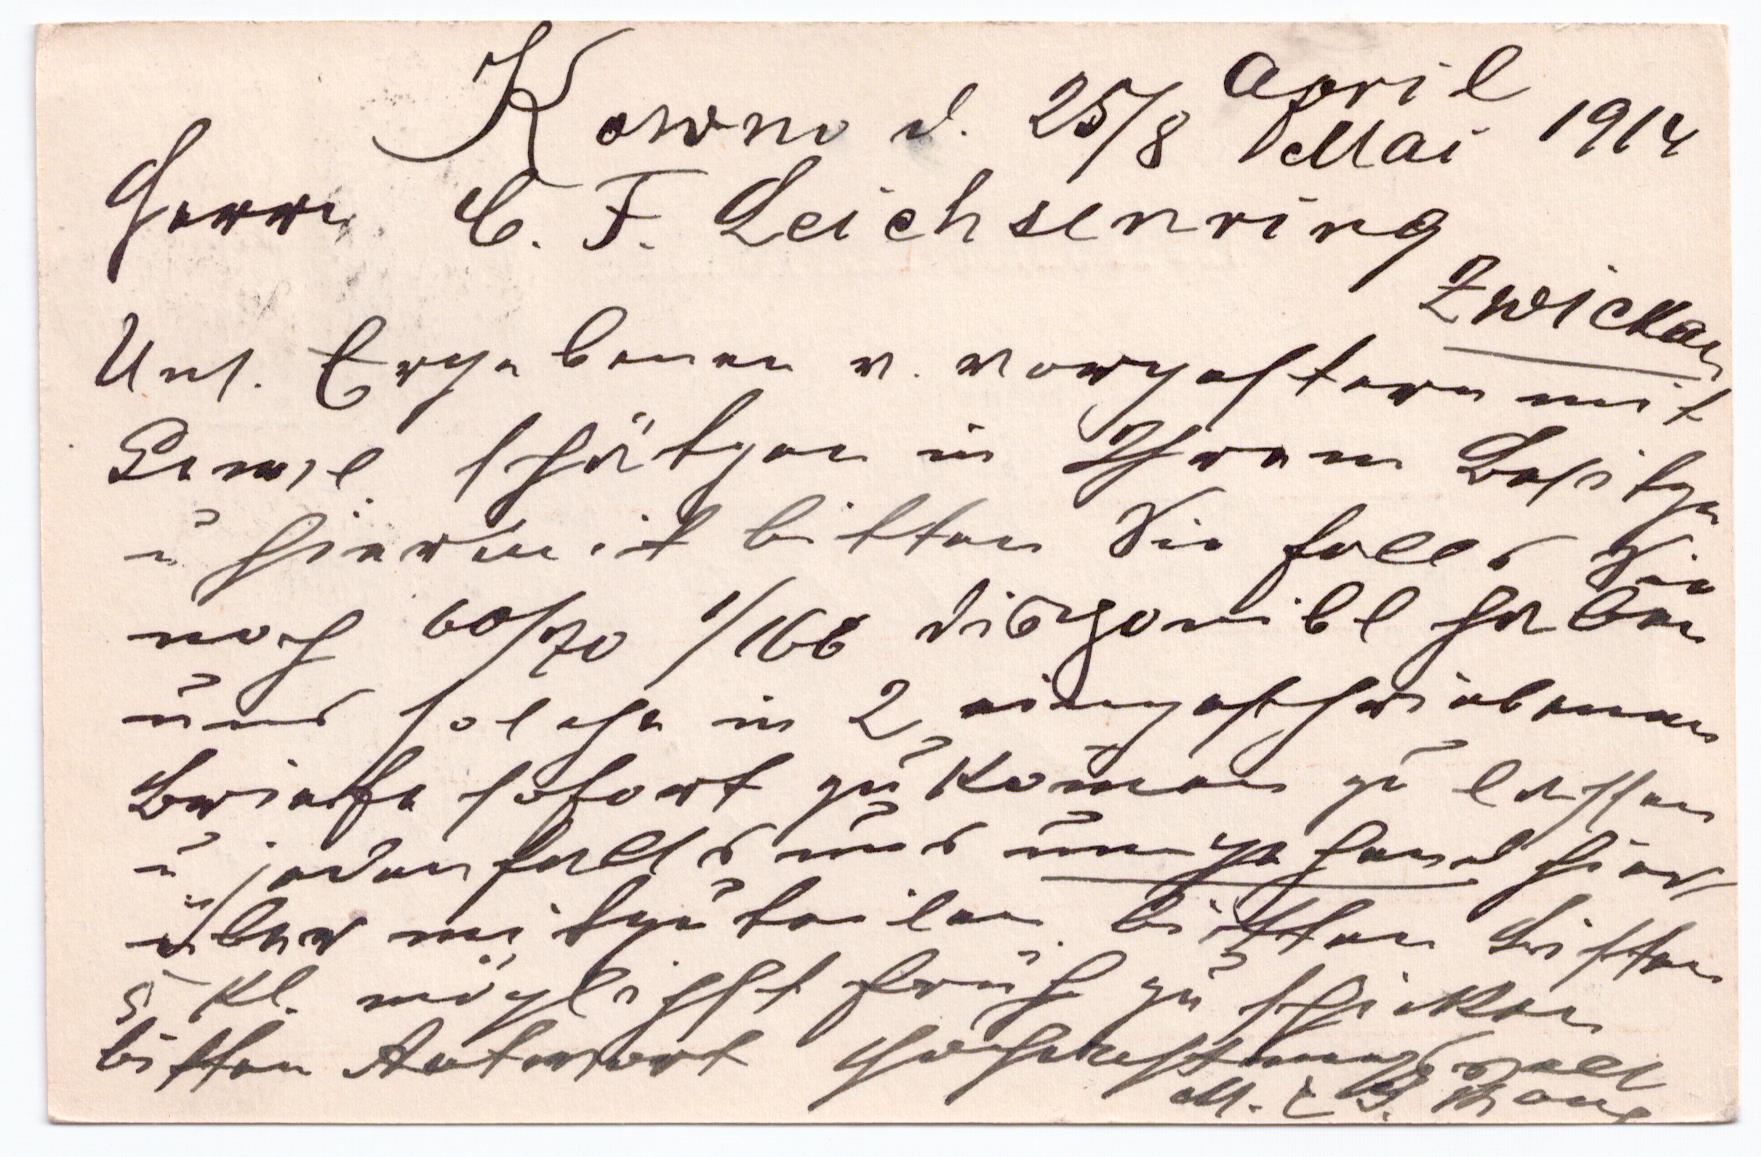 Kowno d. 25/8 April/Mai 1914
Herrn C. F. Leichsenring
Zwickau
Uns. Ergebenen v. vorgestern mit
schätzen in Ihrem Besitze
u hiermit bitten Sie falls Sie
noch 60/70 1/168 disponibl haben
uns solche in 2 eingeschriebenen
Briefe sofort zukom̅en zu lassen
u jedenfalls uns umgehend hier-
über mitzuteilen bitten
5 Kl. möglichst früh zu schicken
bitten Antwort Hochachtungsvoll
M. & J.